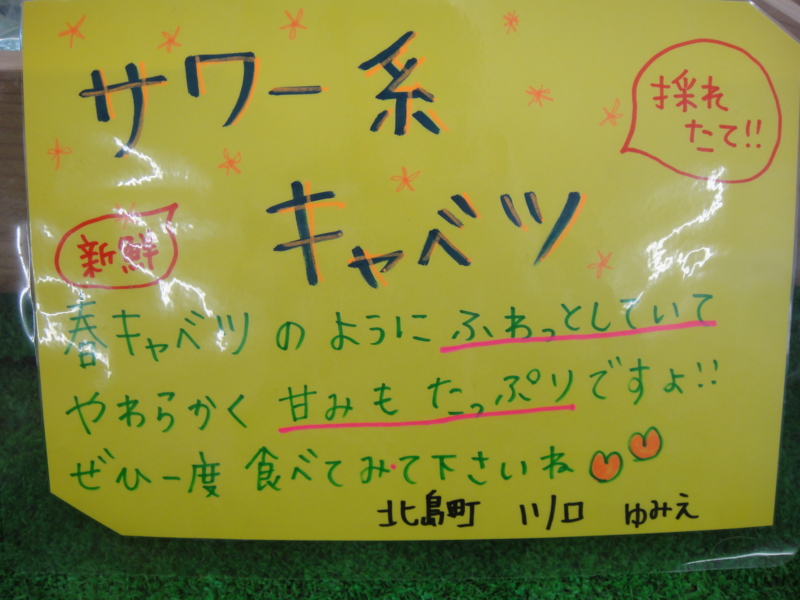 サワー系
採れ
たて!!
キャベツ
新鮮
春キャベツのようにふわっとしていて
やわらかく甘みもたっぷりですよ!!
ぜひ一度食べてみて下さいね
北島町 川口 ゆみえ